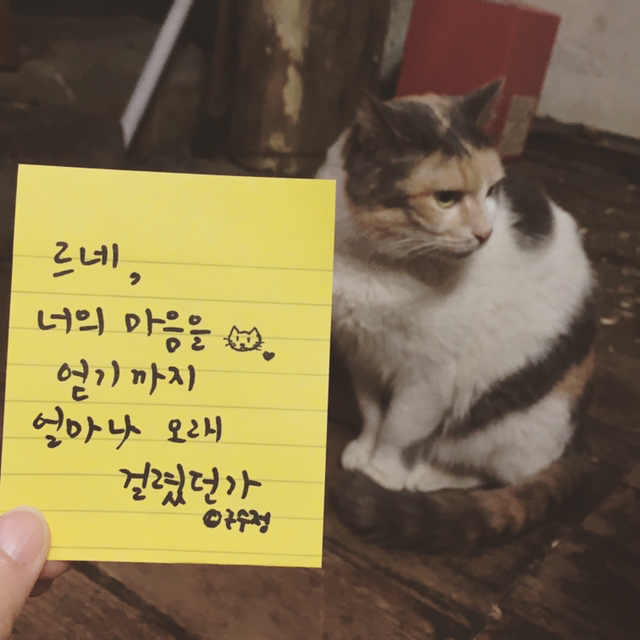 르네,
너의 마음을
얻기까지
얼마나 오래
걸렸던가
©구수정